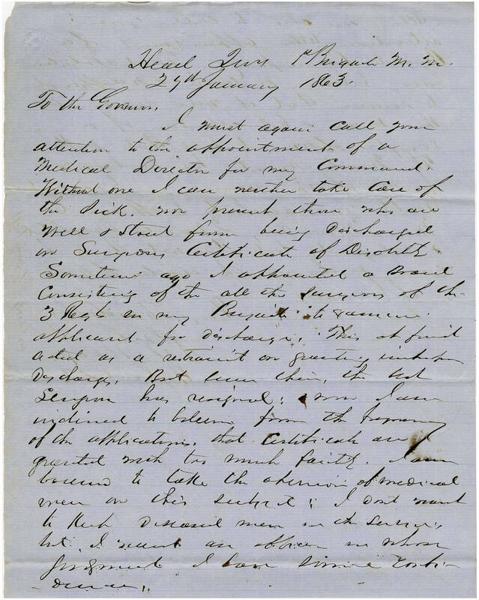 Head Qurs 1st Brigade M. M.
29th January 1863.
To the Governor
I must again call your
attention to the appointment of a
Medical Director for my Command.
Without one I can neither take care of
the sick, nor prevent those who are
well & stout from being discharged
on Surgeons Certificate of Disability
Sometime ago I appointed a board
consisting of the all the surgeons of the
3 Regts in my Brigade to examine
applicant for discharge; This at first
acted as a restraint on granting
discharges. But since then, the best
Surgeon has resigned; now I am
inclined to believe from the
of the applications, that Certificate are
granted with too much facility. I am
to take the opinion of medical
men on this subject; I dont want
to keep diseased men in the service,
but I want an officer in whose
judgment I have some confi-
dence.